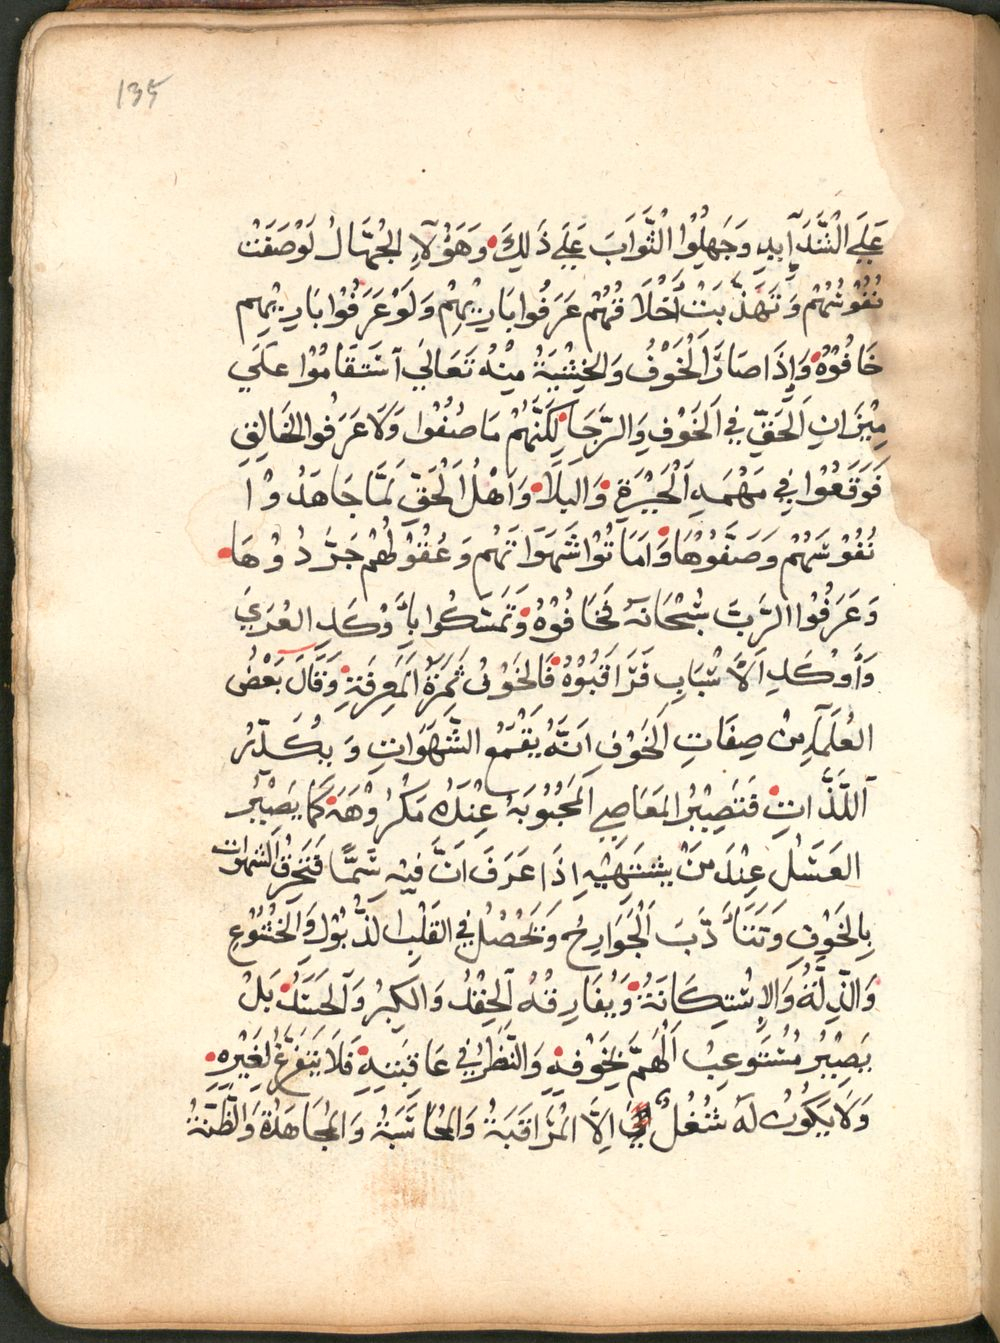 135
عَلَي الشَّدَآيِدِ وَجَهِلُوا الثَّوَابَ عَلَي ذَلِكَ وَهَؤُلآءِ الجُهَّالُ لَوْ صَفَتْ
نُفُوْسُهُمْ وَتَهَذَّبَتْ أَخْلَاقُهُمْ عَرَفُوا بَارِيْهِمْ وَلَوْ عَرَفُوْا بَارِيْهِم
خَافُوْهُ وَإِذَا صَارَ الْخَوْفُ وَالخِشْيَةُ مِنْهُ تَعَالَي آسْتَقَامُوْا عَلَي
مِيْزَانِ اَلْحَقِّ فِي اَلخَوْفِ وَالرَّجَا لَكِنَّهُمْ مَا صُفُوْا وَلَا عَرَفُوا الخَالِقِ
فَوَقَعُوْا فِي مَهْمَهِ اَلْحَيْرَةِ وَالبَلَا وَاَهْلُ اَلْحَقِّ لَمَّا جَاهَدُوْا
نُفُوْسَهُمْ وَصَفَّوْهَا وَاَمَاتُوْا شَهَوَاتَهُم وَعُقُوْلَهُمْ جَرَّدُوْهَا
وَعَرَفُوْا الرَّبَّ سُبْحَانَهُ فَخَافُوْهُ وَتَمَسَّكُوا بِأَوْكَدِ العُرَيَ
وَأَوْكَدِ اَلأَسْبَابِ فَرَاقَبُوْهُ فَالخَوْفُ ثَمَرَةُ اَلمَعِرِفَةِ وَقَالَ بَعْضُ
العُلَمَآءِ مِنْ صِفَاتِ اَلخَوْفِ اَنَّهُ يَقْمَعُ الشَّهَوَاتِ وَيُكَدِّرُ
آللَّذَّاتِ فَتَصِيْرُ المَعَاصِي اَلمَحْبُوْبَةُ عِنْدَهُ مَكْرُوْهَةً كَمَا يَصِيْرُ
العَسَلُ عِنْدَ مَنْ يَشْتَهِيْهِ اِذَا عَرَفَ اَنَّ فِيْهِ سَمًّا فَتَحْرِقُ اَلشَهوَات
بِالخَوْفِ وَتَتَأَدَّبَ اَلْجَوَارِحُ وَيَحْصُلُ فِي القَلْبِ الذُّبُوْلُ وَالخُشُوْعِ
وَالذِلَّةُ وَالإِسْتِكَانَةُ وَيُفَارِقُهُ اَلحِقْدُ وَالكِبْرُ وَآلحَسَدُ بَلْ
يَصِيْرُ مُسْتَوعِبُ اَلْهَمَّ بِخَوْفِهِ وَالنَّظَرُ فِي عَاقِبَتِهِ فَلَا يَتَفَرَّغُ لِغَيْرِهِ
وَلَا يَكُوْنُ لَهُ شُغُلٌ اِلَّا المُرَاقَبَةُ وَالمُحَاسَبَةُ وَالمُجَاهَدَةُ وَالظِّنَّةُ